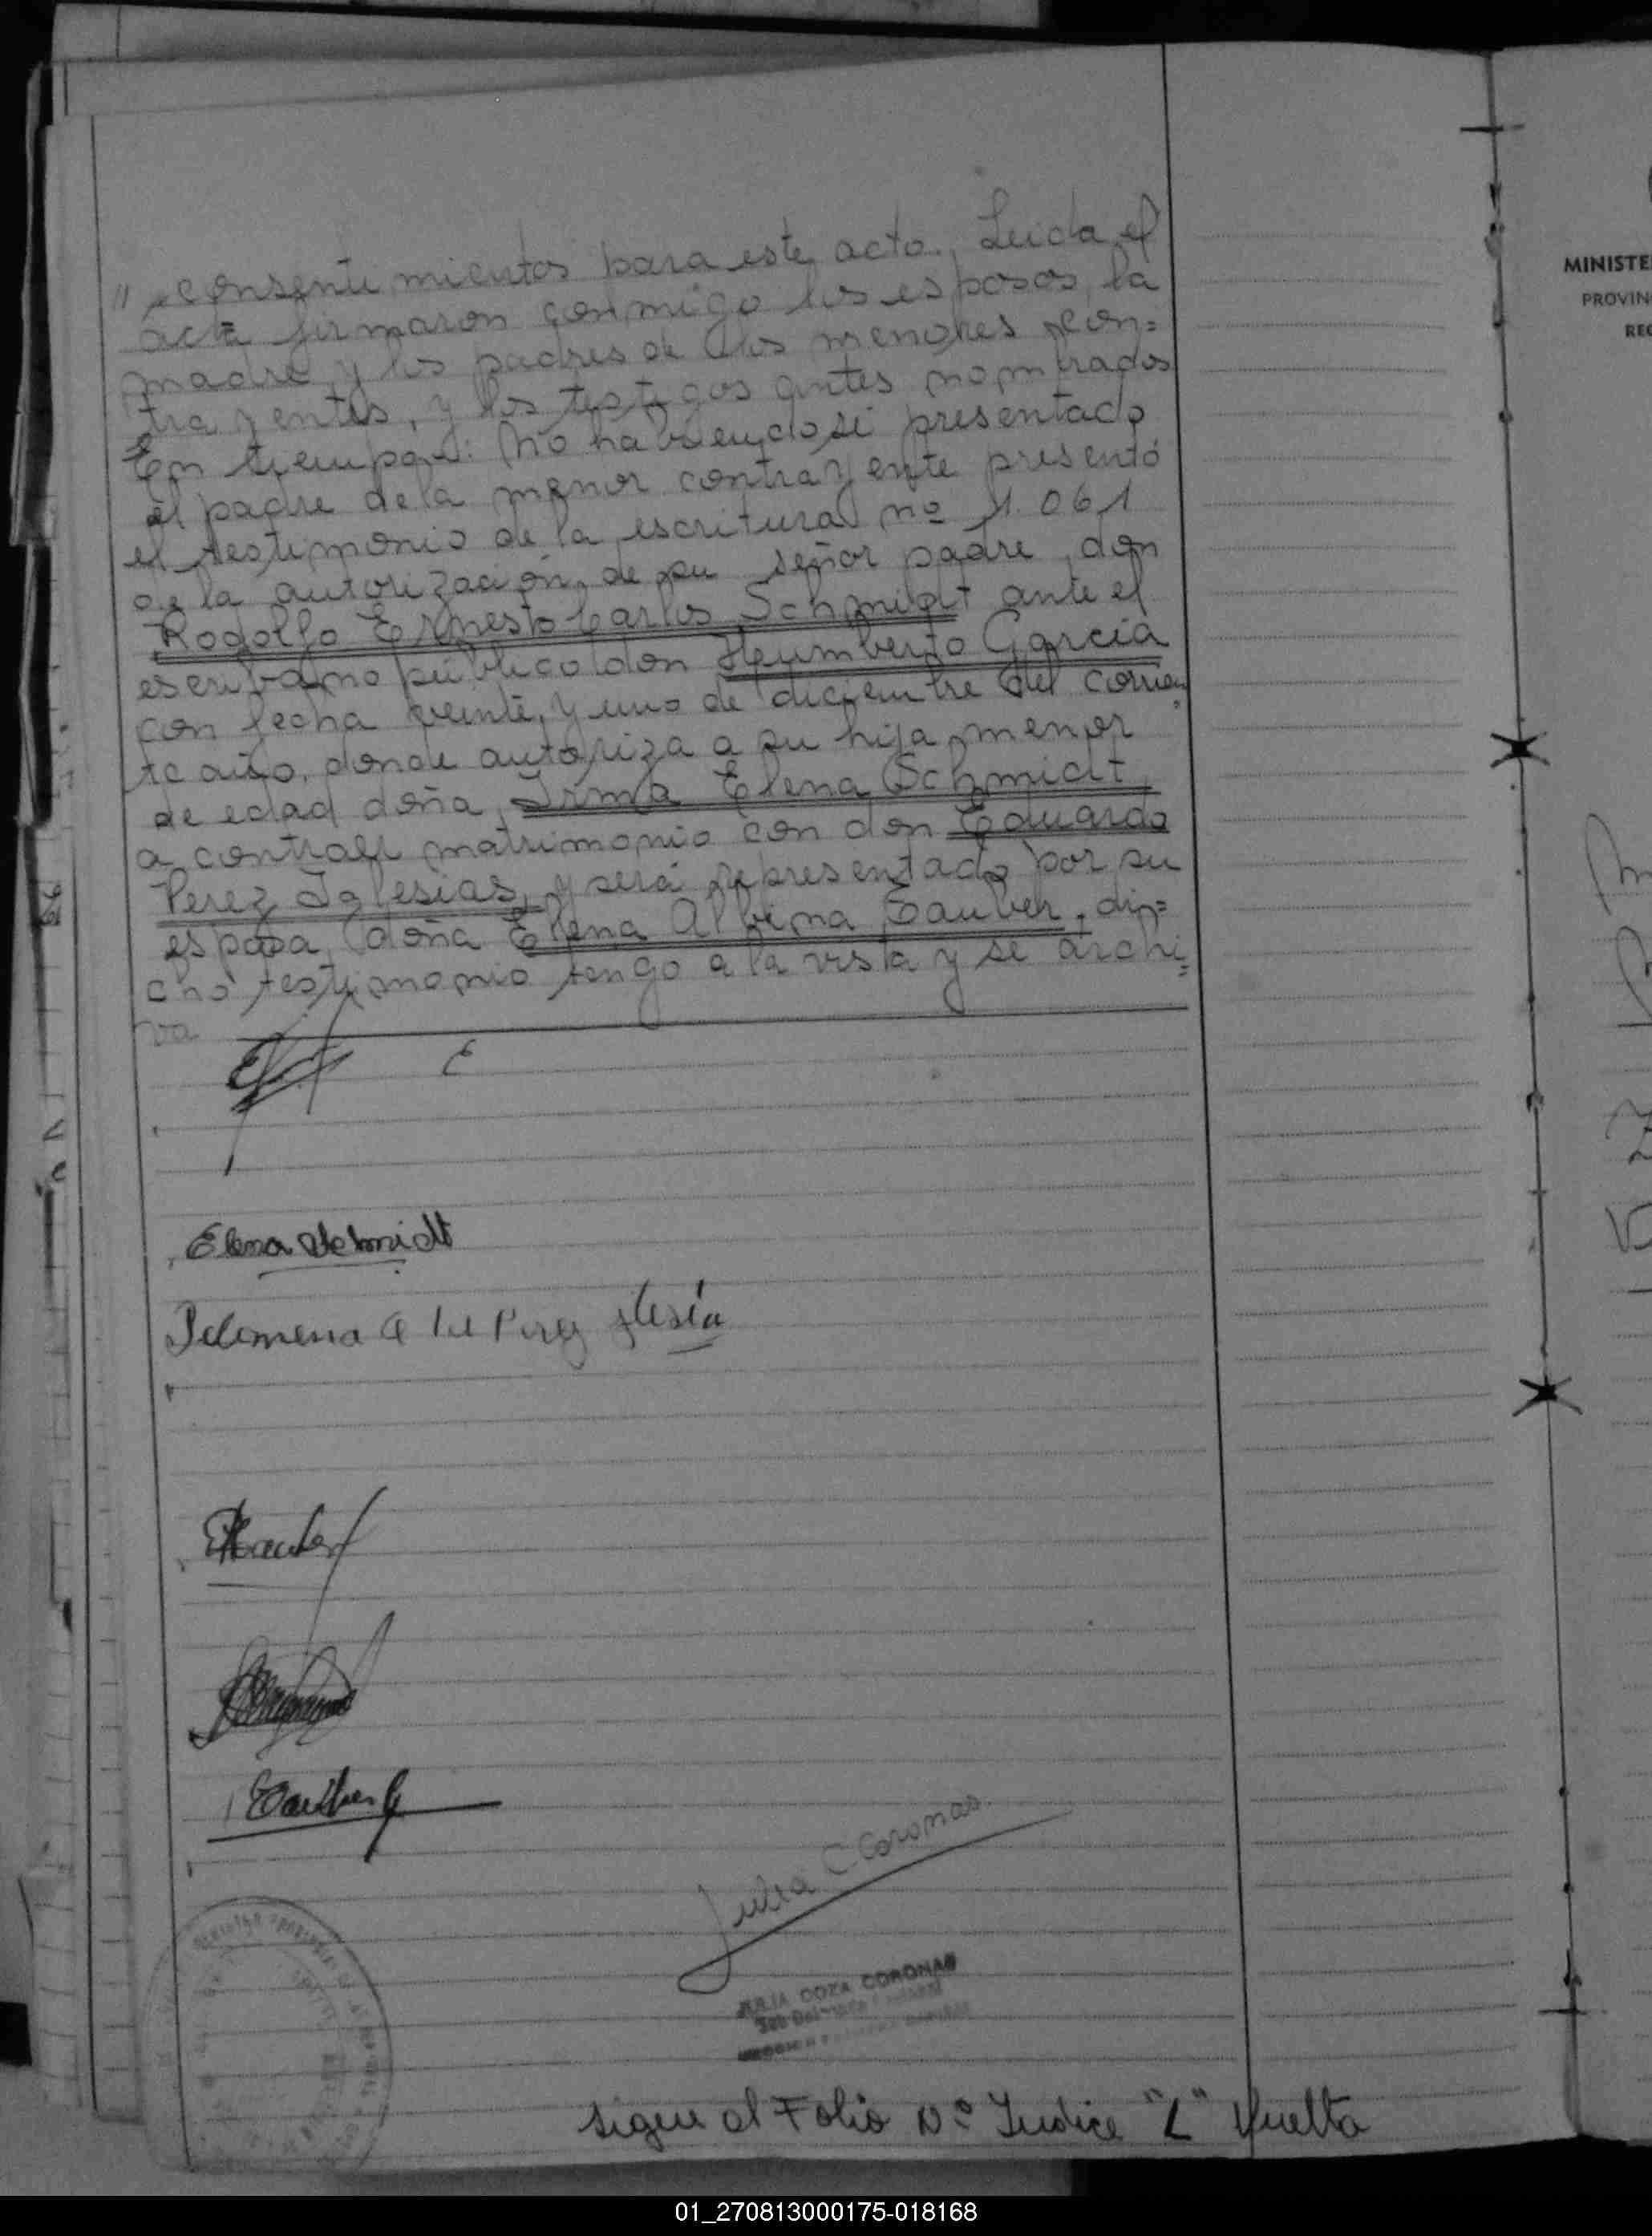 " consentimientos para este acto. Leida el
acta firmaron conmigo los esposos, la
madre y los padres de los menores con=
trayentes, y los testigos antes nombrados
En tiempo: No habiendose presentado
el padre de la menor contrayente presentó
el testimonio de la escritura nº 1.061
de la autorización de su señor padre don
Rodolfo Ernesto Carlos Schmidt ante el
escribano público don Humberto García
con fecha veinte y uno de diciembre del corrien
te año, donde autoriza a su hija menor
de edad doña Irma Elena Schmidt
a contraer matrimonio con don Eduardo
Perez Iglesias, y será representado por su
esposa doña Elena Albina Tauber, di=
cho testimonio tengo a la vista y se archi=
va
E
Elena Schmidt
Perez
Julia C. Coronas
JULIA COZA CORONAS
Sub
sigue al Folio Nº Indice "L" Vuelta
MINISTE
PROVIN
REG
01_270813000175-018168